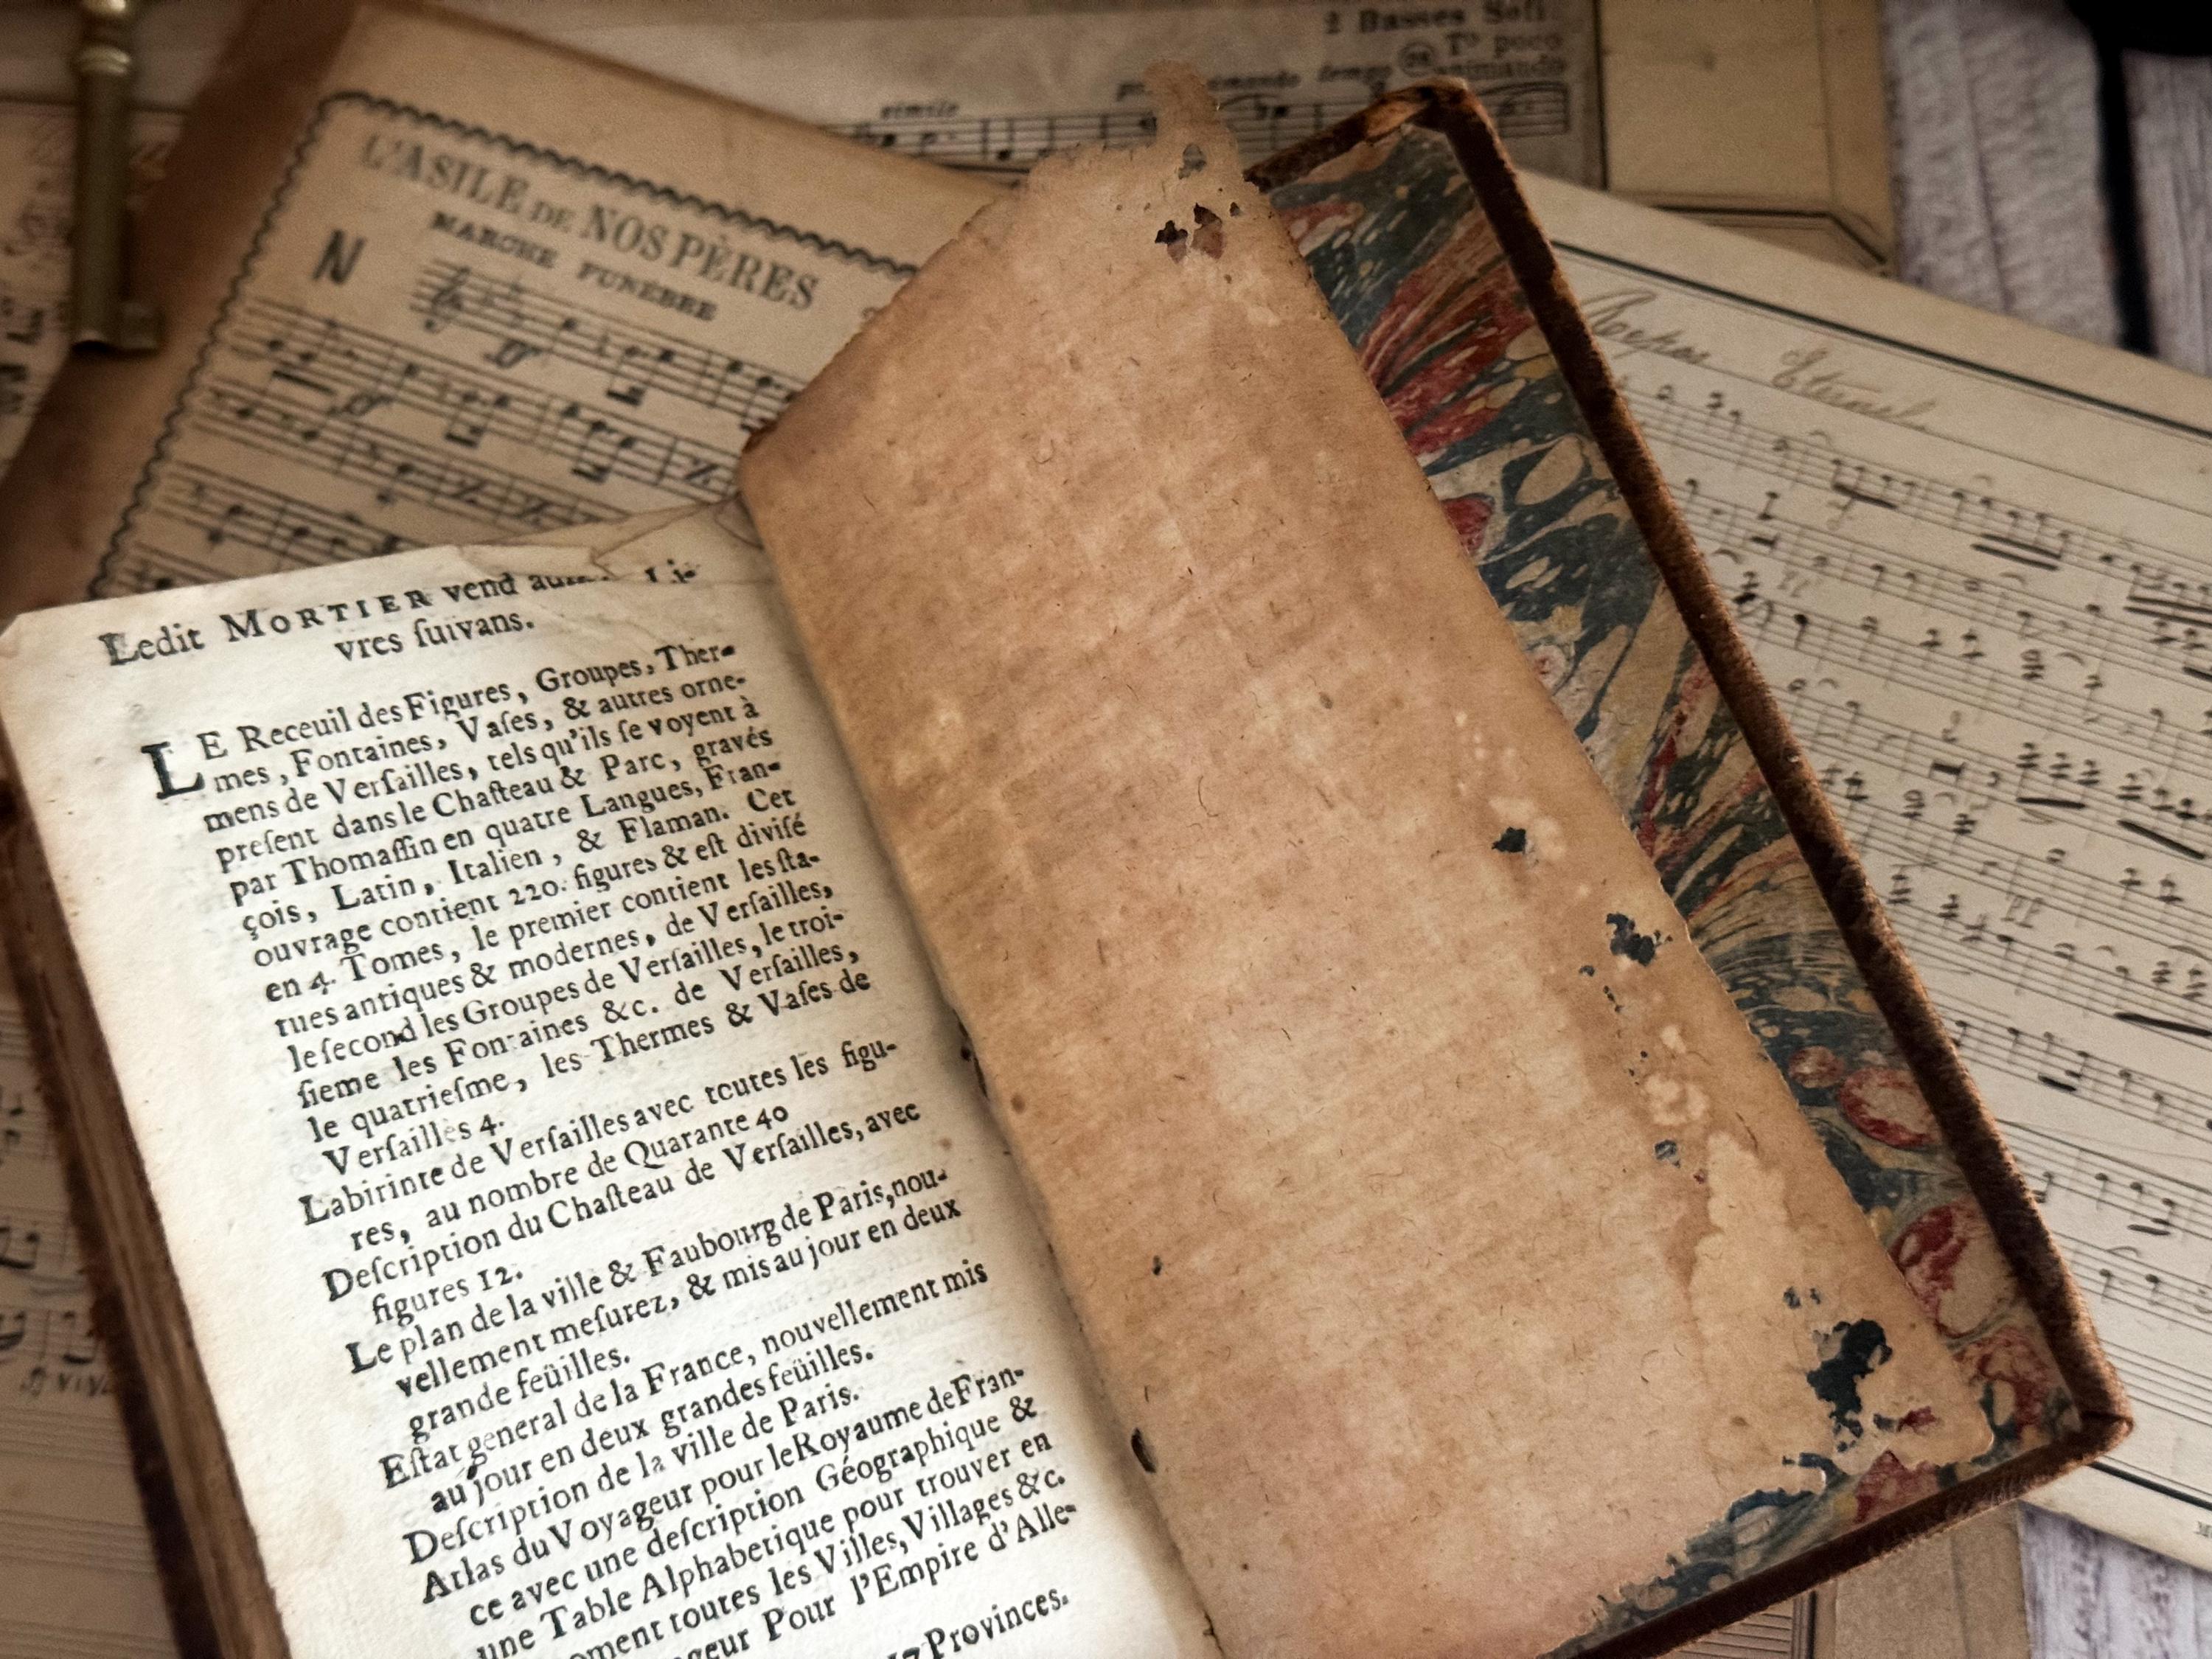 2 Basses Soli
Tº poco
simile
animando tempo
animando
L'ASILE DE NOS PÈRES
MARCHE FUNÈBRE
N
Repos Eternel
Ledit MORTIER vend Li-
vres ſuivans.
LE Receuil des Figures, Groupes, Ther-
mes, Fontaines, Vaſes, & autres orne-
mens de Verſailles, tels qu'ils ſe voyent à
preſent dans le Chaſteau & Parc, gravés
par Thomaſſin en quatre Langues, Fran-
çois, Latin, Italien, & Flaman. Cet
ouvrage contient 220. figures & eſt diviſé
en 4. Tomes, le premier contient les ſta-
tues antiques & modernes, de Verſailles,
le ſecond les Groupes de Verſailles, le troi-
ſieme les Fontaines &c. de Verſailles,
le quatrieſme, les Thermes & Vaſes de
Verſailles 4.
Labirinte de Verſailles avec toutes les figu-
res, au nombre de Quarante 40
Deſcription du Chaſteau de Verſailles, avec
figures 12.
Le plan de la ville & Faubourg de Paris, nou-
vellement meſurez, & mis au jour en deux
grande feüilles.
Eſtat general de la France, nouvellement mis
au jour en deux grandes feüilles.
Deſcription de la ville de Paris.
Atlas du Voyageur pour le Royaume de Fran-
ce avec une deſcription Géographique &
une Table Alphabetique pour trouver en
oment toutes les Villes, Villages &c.
ageur Pour l'Empire d'Alle-
17 Provinces.